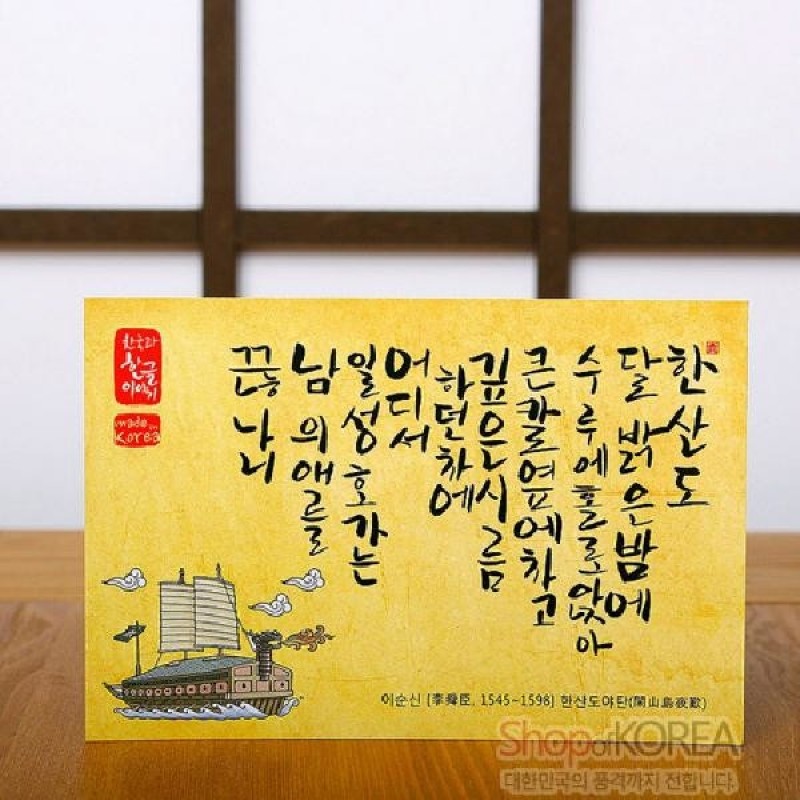 한산도
달 밝은 밤에
수루에 홀로 앉아
큰 칼 옆에 차고
깊은 시름
하던 차에
어디서
일성호가는
남의 애를
끊나니
한국과
한글
이야기
made in
Korea
이순신 (李舜臣, 1545~1598) 한산도야탄(閑山島夜歎)
Shop of KOREA
대한민국의 품격까지 전합니다.